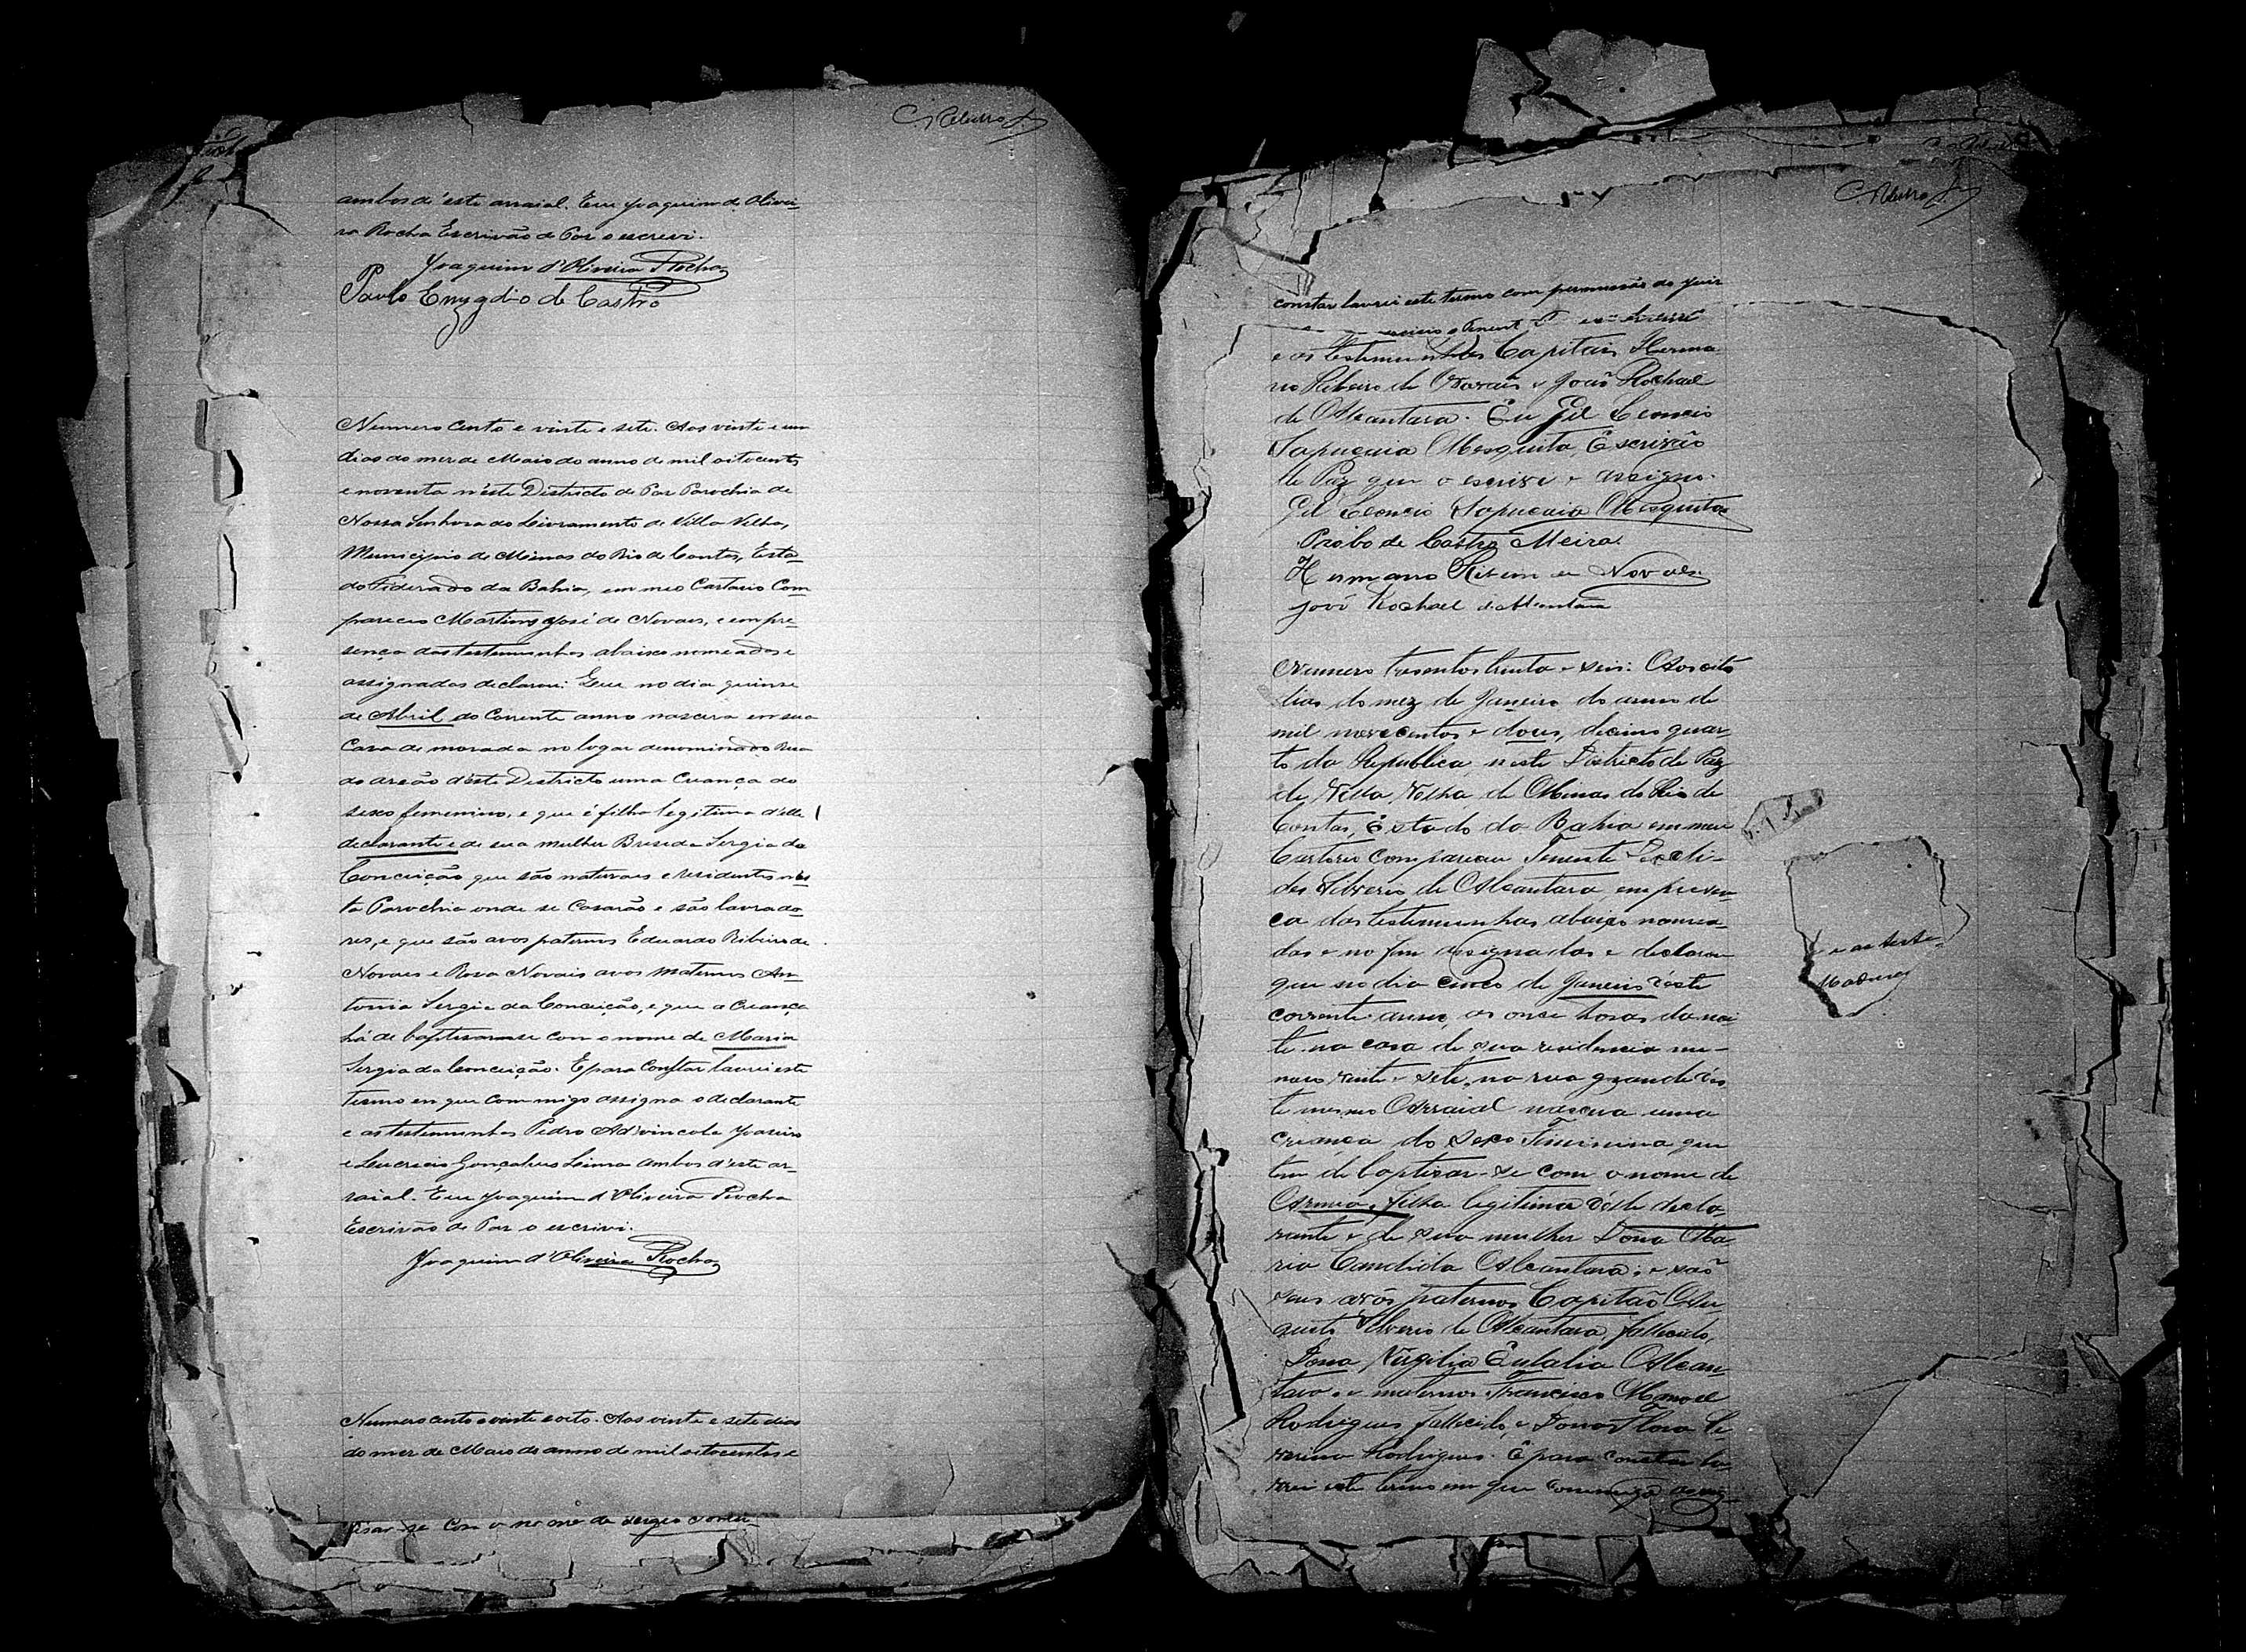 C. Ribeiro
ambos d'este arraial. Eu Joaquim d'Olivei-
ra Rocha Escrivão de Paz o escrevi.
Joaquim d'Oliveira Rocha
Paulo Emygdio de Castro
Numero cento e vinte e sete. Aos vinte e um
dias do mez de Maio do anno de mil oitocentos
e noventa n'este Districto de Paz Parochia de
Nossa Senhora do Livramento de Villa Velha,
Municipio de Minas do Rio de Contas, Esta-
do Federado da Bahia, em meo Cartorio Com
pareceo Martins José de Novaes, e em pre-
sença das testemunhas abaixo nomeadas e
assignadas declarou: Que no dia quinse
de Abril do Corrente anno nascera em sua
Casa de morada no logar denominado Rua
do areão d'este Districto uma Criança do
sexo femenino, e que é filha legitima d'elle
declarante e de sua mulher Sergia da
Conceição que são naturaes e residentes nes
ta Parochia onde se Casarão e são lavrado
res, e que são avos paternos Eduardo Ribeiro de
Novaes e Rosa Novais avos maternos An-
tonia Sergia da Conceição, e que a Criança
há de baptisarse com o nome de Maria
Sergia da Conceição. E para Constar lavrei este
termo em que commigo assigna o declarante
e as testemunhas Pedro Advincola
e Gonçalves Lima ambos d'este ar-
raial. Eu Joaquim d'Oliveira Rocha
Escrivão de Paz o escrivi.
Joaquim d'Oliveira Rocha
Numero cento e vinte e oito. Aos vinte e sete dias
do mez de Maio do anno de mil oitocentos e
tisar-se com o nome de Sergio
C. Ribeiro
constar lavrei este termo com permissão do Juiz
Tenente
e as testemunhas Capitão Herma
no Ribeiro de Novaes e João Rochael
de Alcantara. Eu Gil Leoncio
Sapucaia Mesquita, Escrivão
de Paz que o escrevi e assigno.
Gil Leoncio Sapucaia Mesquita
Probo de Castro Meira
Hermano Ribeiro de Novaes
João Rochael de Alcantara
Numero tresentos trinta e seis: Aos oito
dias do mez de Janeiro do anno de
mil novecentos e dous, decimo quar
to da Republica, neste Districto de Paz
de Villa Velha de Minas do Rio de
Contas, Estado da Bahia em meu
Cartorio compareceu Tenente
des Silverio de Alcantara, em presen-
ça das testemunhas abaixo nomea-
das e no fim assignadas e declarou
que no dia cinco de Janeiro d'este
corrente anno, as onze horas da noi
te na casa de sua residencia nu-
mero vinte e sete, na rua grande d'es
te mesmo Arraial nasceu uma
criança do sexo Feminino que
tem de baptisar-se com o nome de
filha legitima d'elle decla-
rante e de sua mulher Dona Ma-
ria Candida Alcantara; e são
seus avós paternos Capitão Au
gusto Silverio de Alcantara, fallecido,
Dona Virgilia Eulalia Alcan-
tara, e maternos Francisco Manoel
Rodrigues fallecido, e Dona Flora Se
verina Rodrigues. E para constar la-
vrei este termo em que commigo assig-
e as teste-